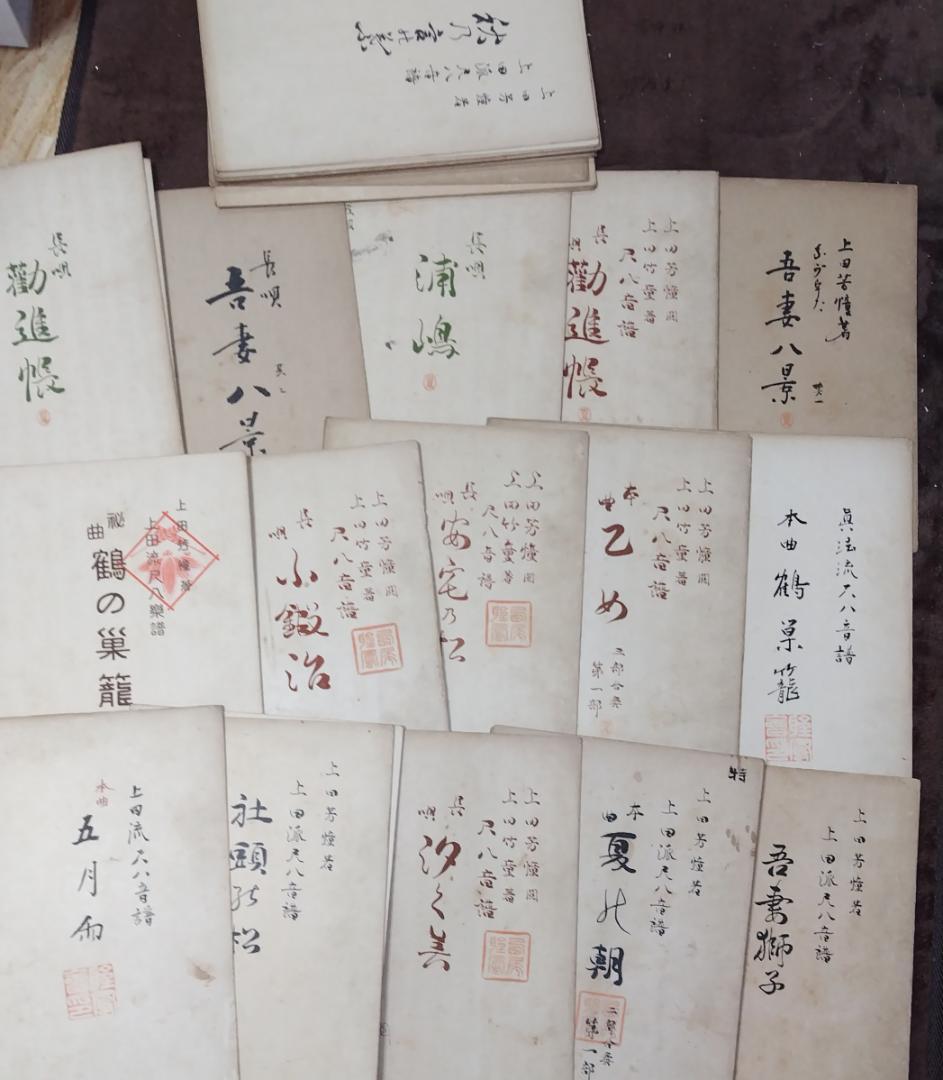 上田芳憧著
上田派尺八音譜
秋乃言の葉
長唄
勧進帳
長唄
吾妻八景
其二
長唄
浦嶋
上田芳憧閲
上田竹憧著
尺八音譜
長唄
勧進帳
上田芳憧著
吾妻八景
其一
上田芳憧著
上田流尺八樂譜
秘曲
鶴の巣籠
上田芳憧閲
上田竹憧著
尺八音譜
長唄
小鍛治
上田芳憧閲
上田竹憧著
尺八音譜
長唄
安宅乃松
上田芳憧閲
上田竹憧著
尺八音譜
本曲
乙め
三部合奏
第一部
眞法流尺八音譜
本曲
鶴巣籠
上田流尺八音譜
本曲
五月雨
上田芳憧著
上田派尺八音譜
社頭の松
上田芳憧閲
上田竹憧著
尺八音譜
長唄
汐くみ
特
上田芳憧著
上田派尺八音譜
本曲
夏の朝
二部合奏
第一部
上田芳憧著
上田派尺八音譜
吾妻獅子